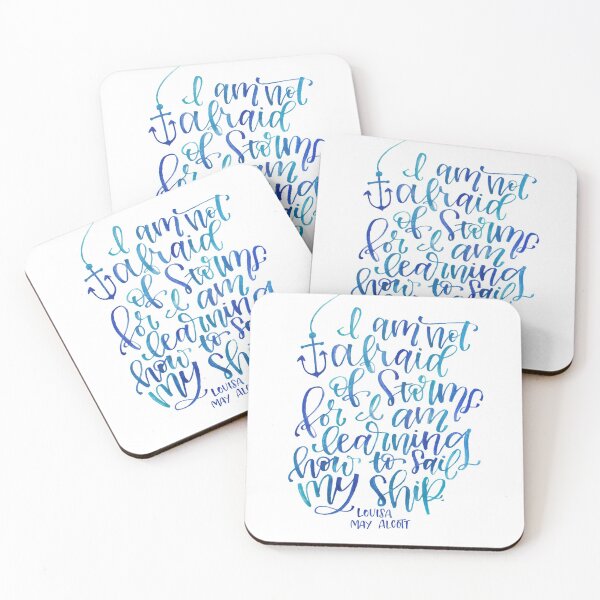 I am not
afraid
of Storms
I am not
afraid
of Storms
for I am
learning
how to sail
I am not
afraid
of Storms
for I am
learning
how to sail
my ship
LOUISA
MAY ALCOTT
I am not
afraid
of Storms
for I am
learning
how to sail
my ship.
LOUISA
MAY ALCOTT